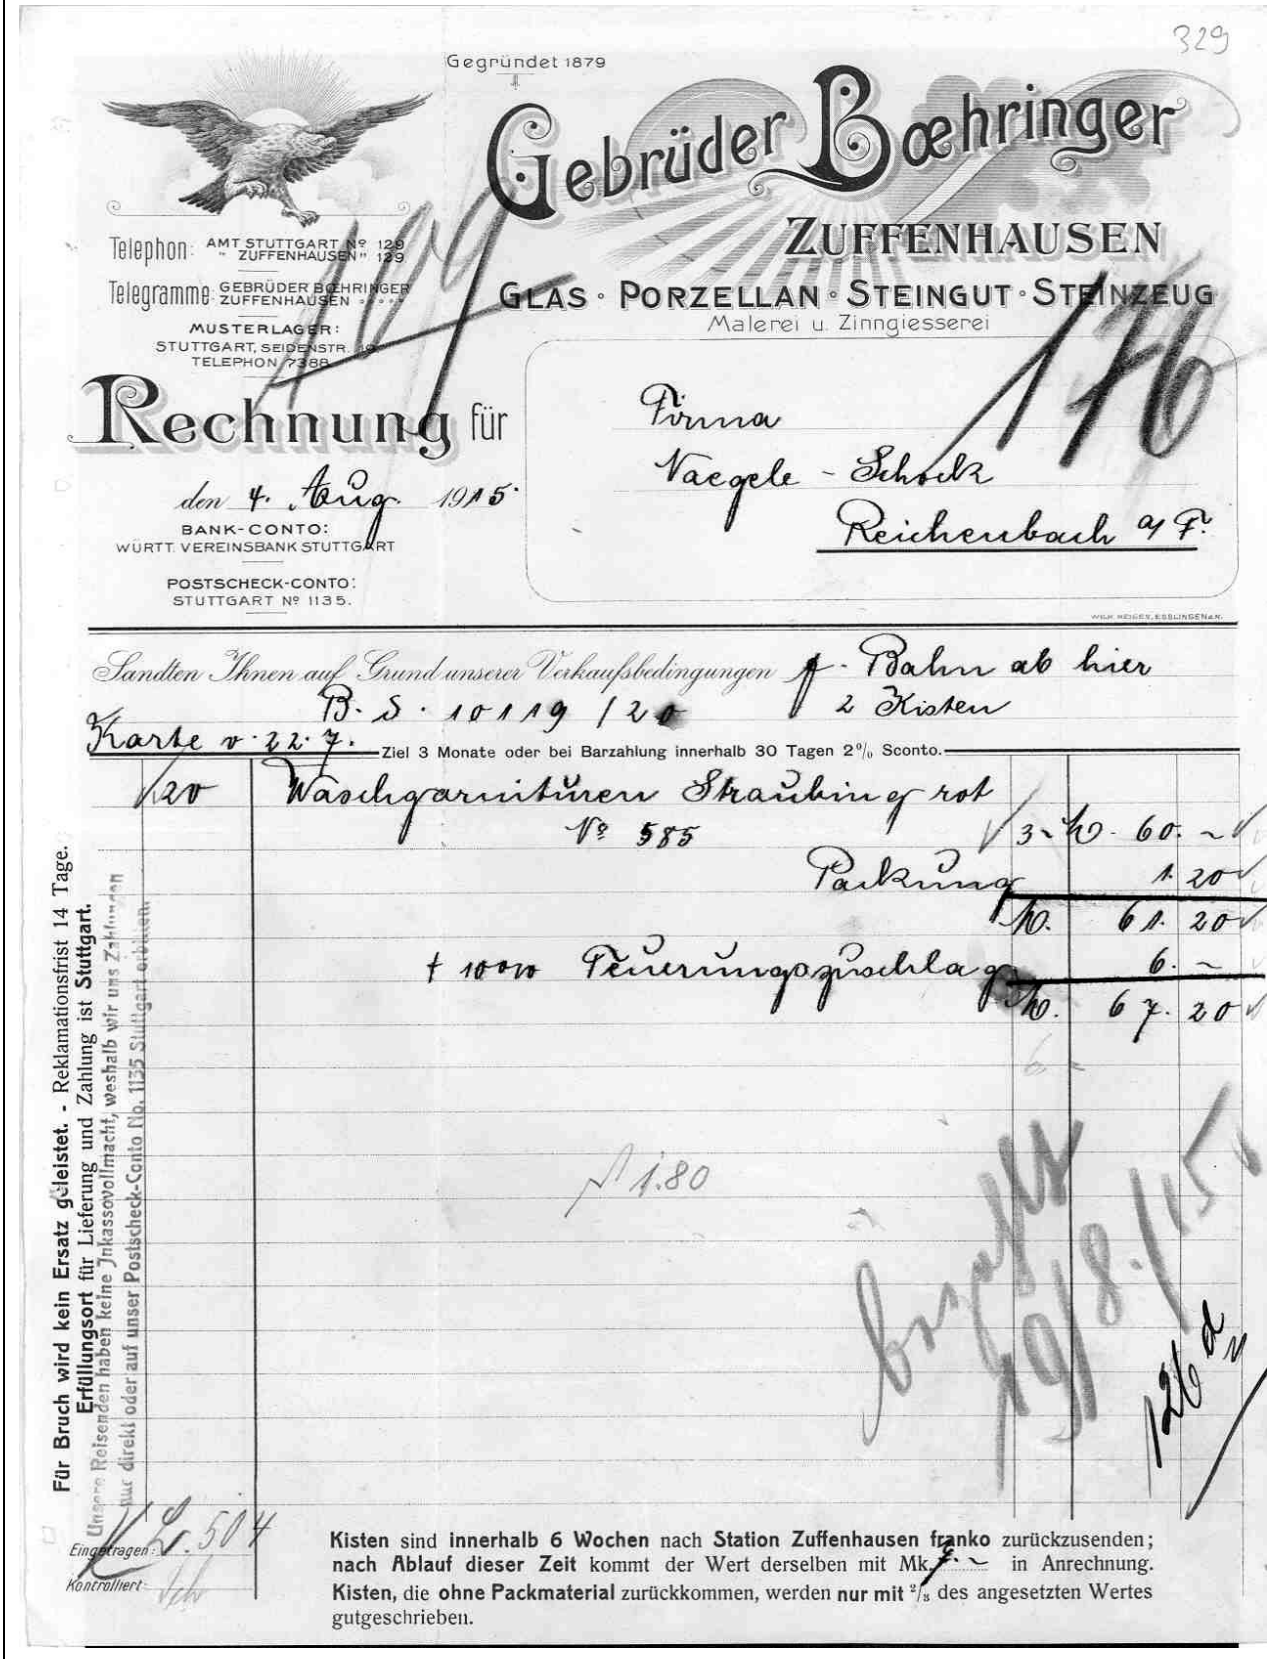 329
Gegründet 1879
Gebrüder Bœhringer
ZUFFENHAUSEN
GLAS · PORZELLAN · STEINGUT · STEINZEUG
Malerei u. Zinngiesserei
Telephon: AMT STUTTGART Nº 129
" ZUFFENHAUSEN " 129
Telegramme: GEBRÜDER BŒHRINGER
ZUFFENHAUSEN
MUSTERLAGER:
STUTTGART, SEIDENSTR.
TELEPHON 7388
199
176
Rechnung für
Firma
Naegele - Schock
Reichenbach a/F.
den 4. Aug. 1915.
BANK-CONTO:
WÜRTT. VEREINSBANK STUTTGART
POSTSCHECK-CONTO:
STUTTGART Nº 1135.
Sandten Ihnen auf Grund unserer Verkaufsbedingungen p. Bahn ab hier
B. S. 10119/20 2 Kisten
Karte v. 22.7. Ziel 3 Monate oder bei Barzahlung innerhalb 30 Tagen 2% Sconto.
20 Waschgarnituren Straubing rot
Nº 585 3.- M. 60. -
Packung 1. 20
M. 61. 20
+ 10% Teuerungszuschlag 6. -
M. 67. 20
6 -
1.80
bezahlt
19/8./15
126
Für Bruch wird kein Ersatz geleistet. - Reklamationsfrist 14 Tage.
Erfüllungsort für Lieferung und Zahlung ist Stuttgart.
Unsere Reisenden haben keine Jnkassovollmacht, weshalb wir uns Zahlungen
nur direkt oder auf unser Postscheck-Conto No. 1135 Stuttgart erbitten.
Eingetragen: 504
Kontrolliert:
Kisten sind innerhalb 6 Wochen nach Station Zuffenhausen franko zurückzusenden;
nach Ablauf dieser Zeit kommt der Wert derselben mit Mk. 7.- in Anrechnung.
Kisten, die ohne Packmaterial zurückkommen, werden nur mit 2/3 des angesetzten Wertes
gutgeschrieben.